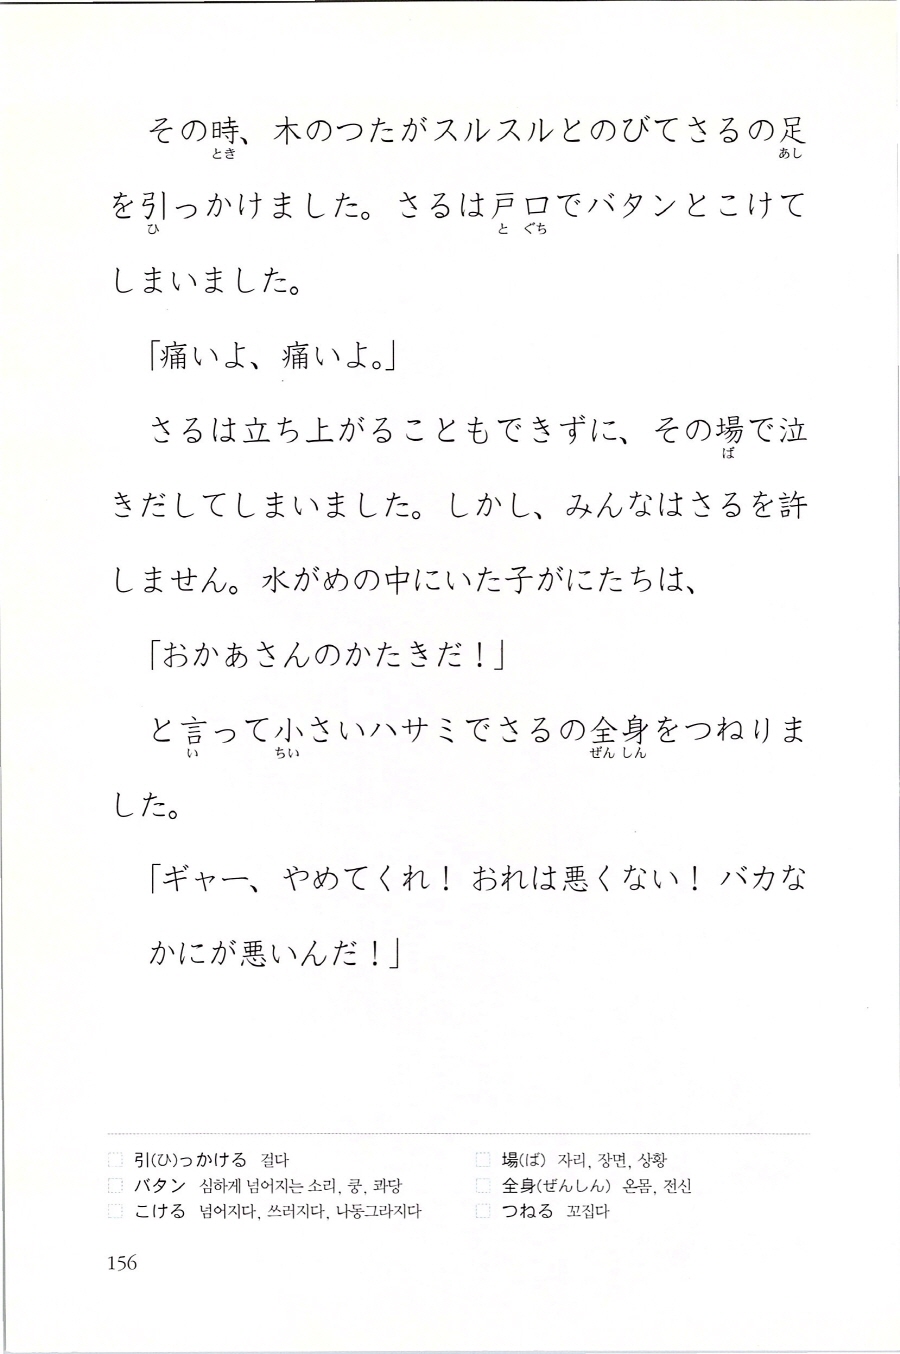 その時、木のつたがスルスルとのびてさるの足
とき あし
を引っかけました。さるは戸口でバタンとこけて
ひ と ぐち
しまいました。
「痛いよ、痛いよ。」
さるは立ち上がることもできずに、その場で泣
ば
きだしてしまいました。しかし、みんなはさるを許
しません。水がめの中にいた子がにたちは、
「おかあさんのかたきだ！」
と言って小さいハサミでさるの全身をつねりま
い ちい ぜん しん
した。
「ギャー、やめてくれ！ おれは悪くない！ バカな
かにが悪いんだ！」
引(ひ)っかける 걸다
バタン 심하게 넘어지는 소리, 쿵, 콰당
こける 넘어지다, 쓰러지다, 나동그라지다
場(ば) 자리, 장면, 상황
全身(ぜんしん) 온몸, 전신
つねる 꼬집다
156